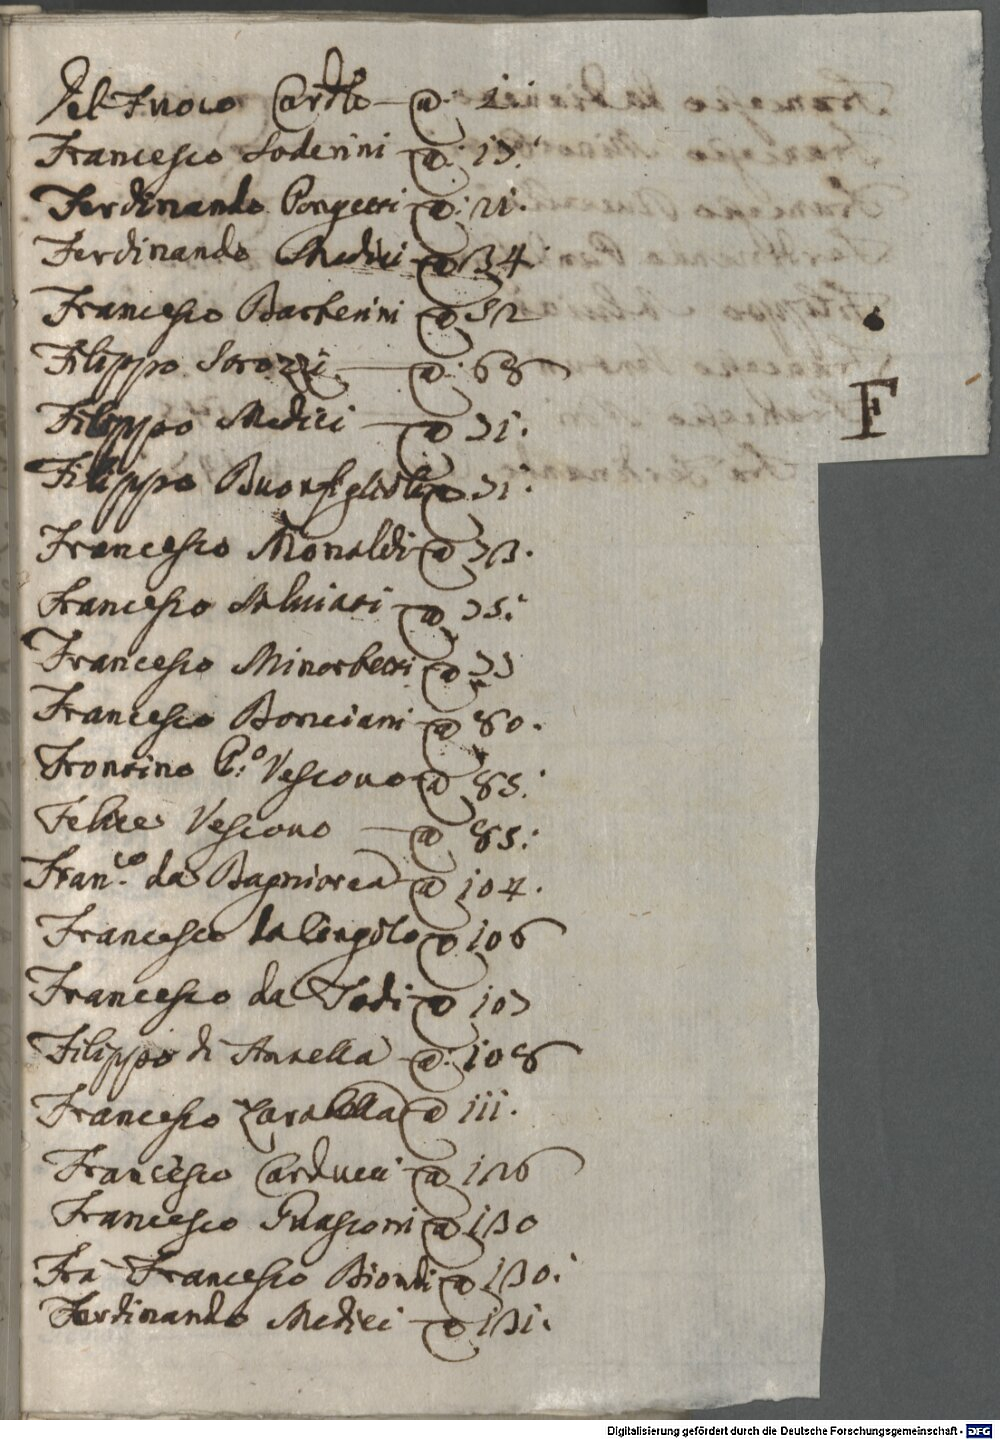 Del Fuoco Cardle @ 1:
Francesco Soderini @: 17:
Ferdinando Ponzetti @: 21:
Ferdinando Medici @ 34
Francesco Barberini @ 52
Filippo Strozzi @: 68
Filippo Medici @ 71:
Filippo Buonfiglioli @ 71:
Francesco Monaldi @ 73.
Francesco Salviati @ 75:
Francesco Minorbetti @ 77
Francesco Bonciani @ 80.
Frontino P:º Vescovo @ 85:
Felice Vescovo @ 85:
Fran.co da Bagniorea @ 104.
Francesco da Cingolo @ 106
Francesco da Todi @ 107
Filippo di Antella @: 108
Francesco Zarabella @ 111.
Francesco Carducci @ 126
Francesco Guasconi @ 130
Fra Francesco Biondi @ 130:
Ferdinando Medici @ 131:
F
Digitalisierung gefördert durch die Deutsche Forschungsgemeinschaft - DFG